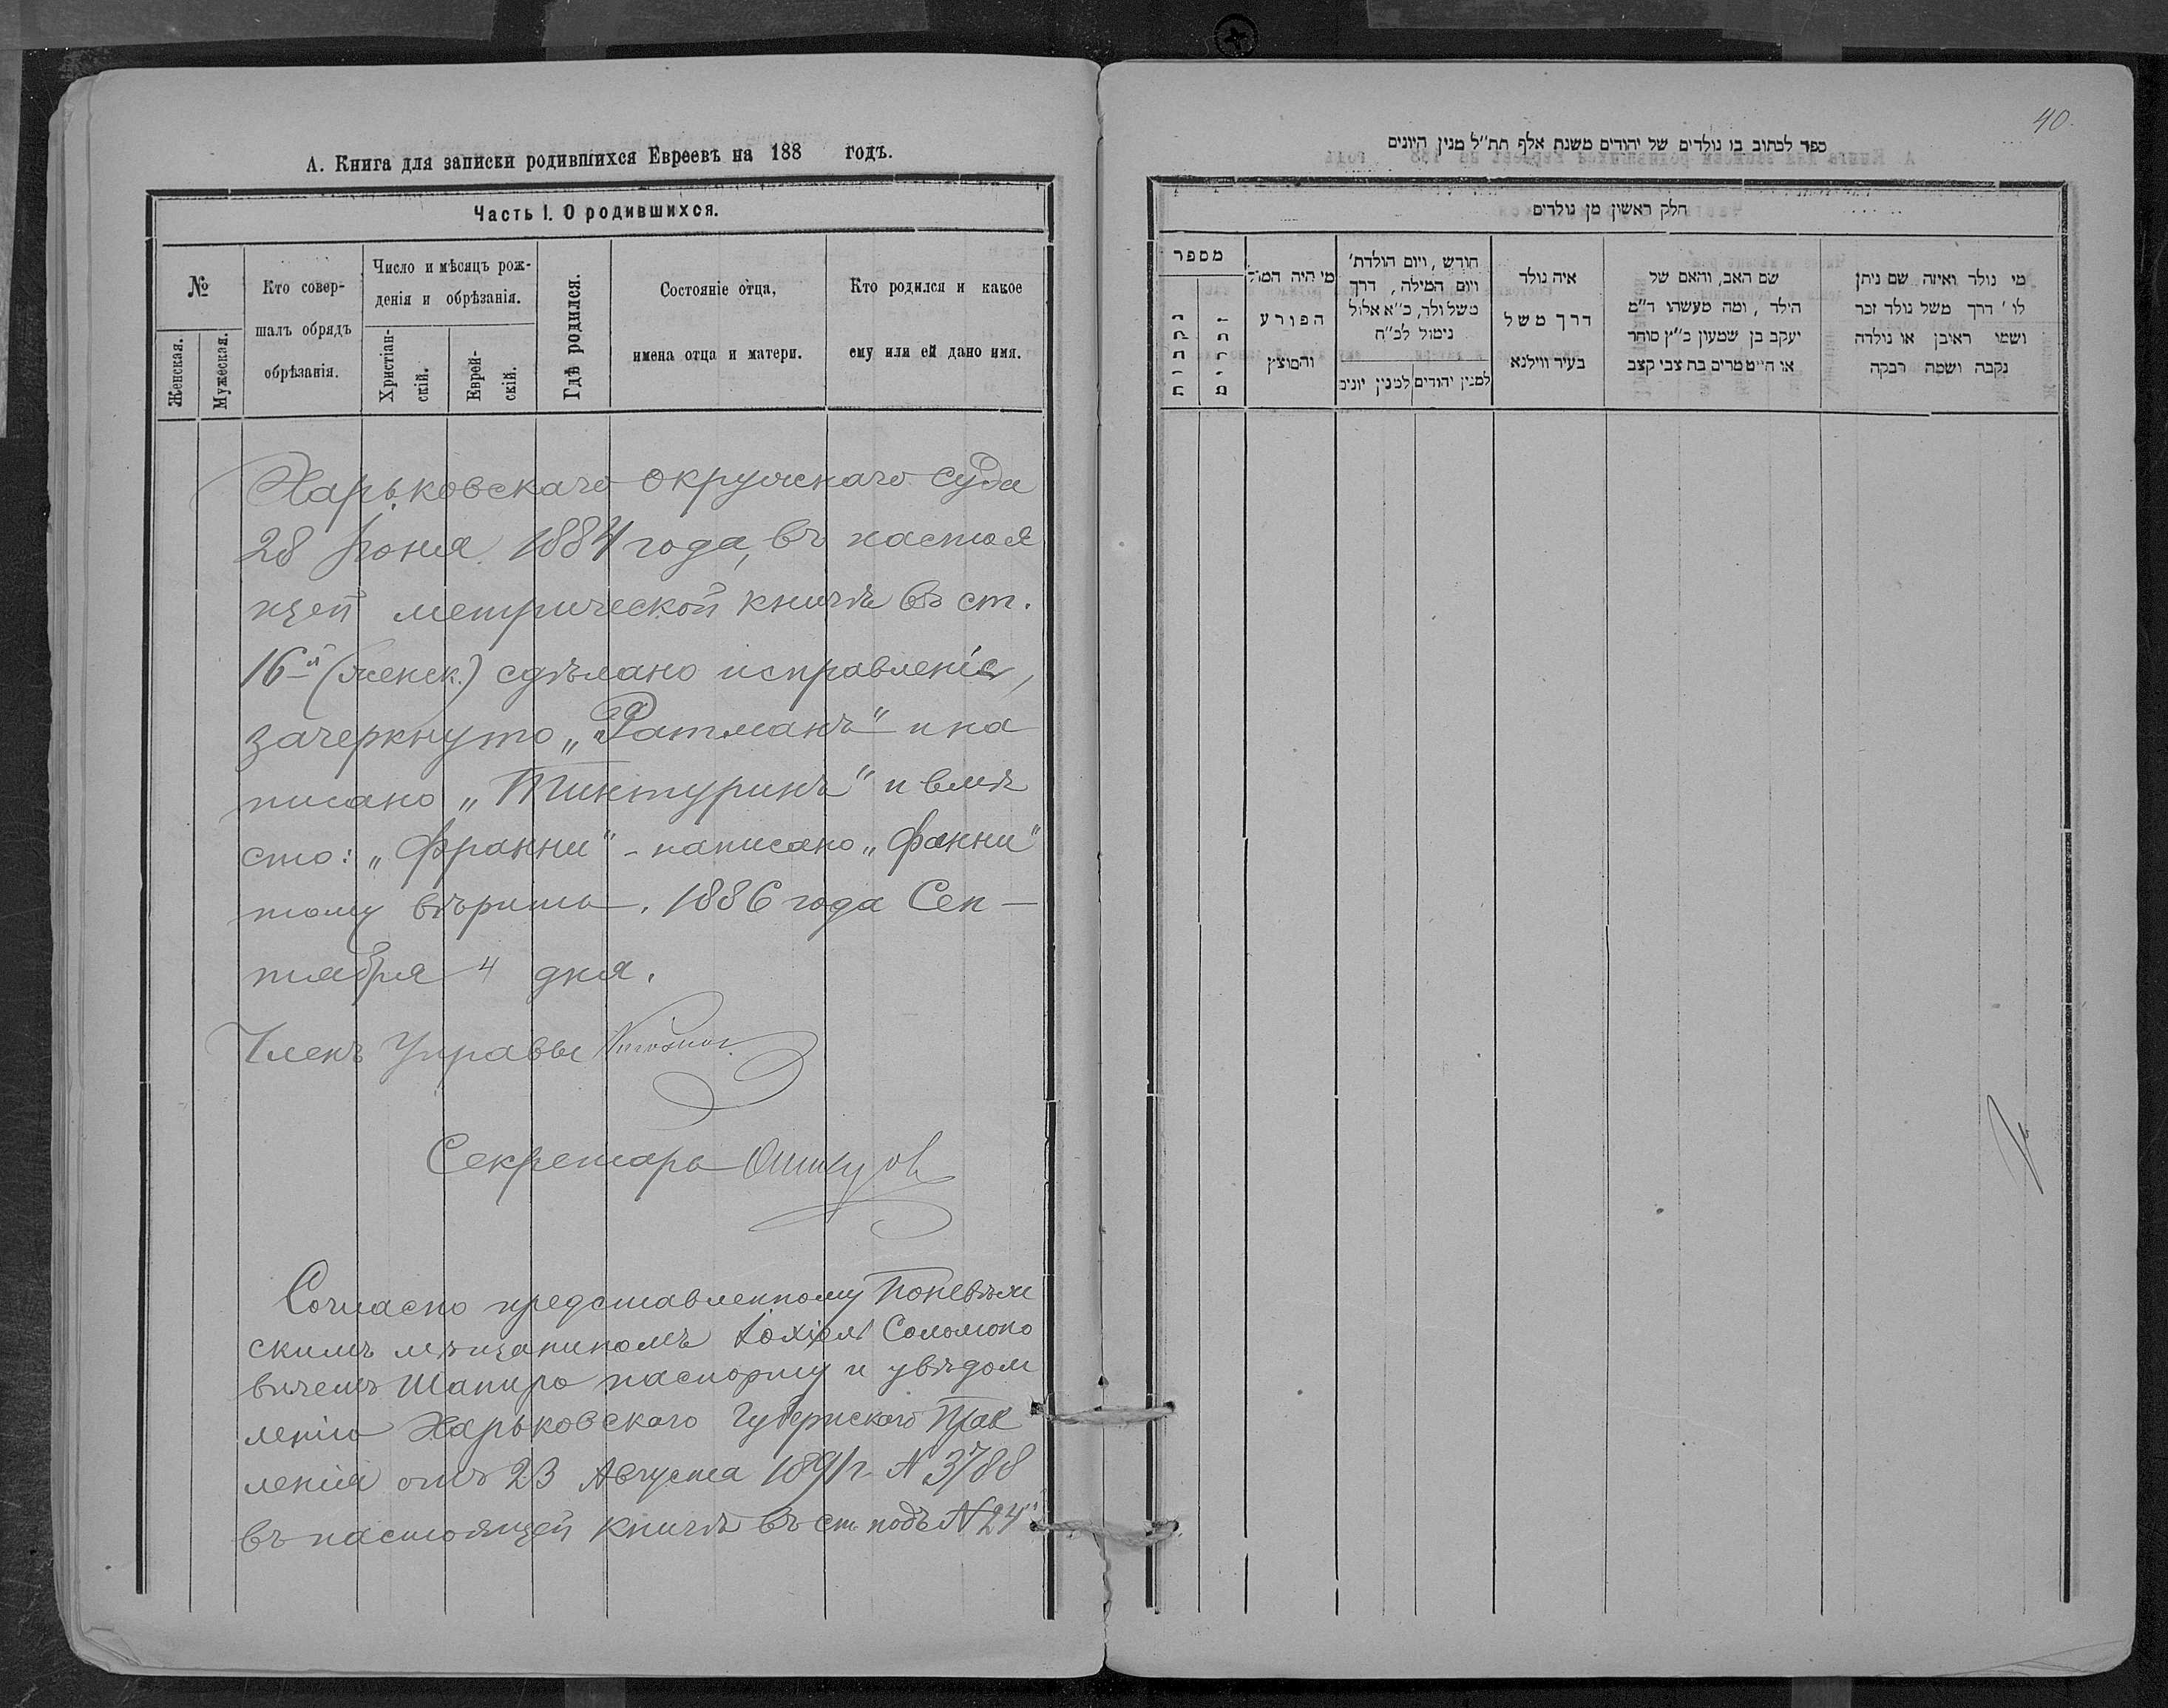 А. Книга для записки родившихся Евреевъ на 188 годъ.
Часть I. О родившихся.
№
Женская.
Мужеская.
Кто совер-
шалъ обрядъ
обрѣзанія.
Число и мѣсяцъ рож-
денія и обрѣзанія.
Христіан-
скій.
Еврей-
скій.
Гдѣ родился.
Состояніе отца,
имена отца и матери.
Кто родился и какое
ему или ей дано имя.
Харьковскаго окружнаго суда
28 Іюня 1884 года, въ настоя
щей метрической книгѣ въ ст.
16й (женск.) сдѣлано исправленіе,
зачеркнуто „Ратманъ" и на
писано „Тинтуринъ" и вмѣ
сто: „Франни" - написано „Фанни"
тому вѣрить. 1886 года Сен-
тября 4 дня.
Членъ Управы
Секретарь
Согласно представленному Поневѣж
скимъ мѣщаниномъ Соломоно
вичемъ Шапиро паспорту и увѣдом
ленію Харьковскаго Губернскаго Прав
ленія отъ 23 Августа 1891 г. № 3788
въ настоящей книгѣ въ ст. подъ № 24
40.
ספר לכתוב בו נולדים של יהודים משנת אלף תת״ל מנין היונים
חלק ראשון מן נולדים
מספר
נקבות
זכרים
מי היה המוהל
הפורע
והמוצץ
חודש, ויום הולדת׳
ויום המילה, דרך
משל ולד, כ״א אלול
נימול לכ״ח
למנין יהודים
למנין יונים
איה נולד
דרך משל
בעיר ווילנא
שם האב, והאם של
הילד, ומה מעשהו ד״מ
יעקב בן שמעון כ״ץ סוחר
או חייט מרים בת צבי קצב
מי נולד ואיזה שם ניתן
לו ׳ דרך משל נולד זכר
ושמו ראיבן או נולדה
נקבה ושמה רבקה